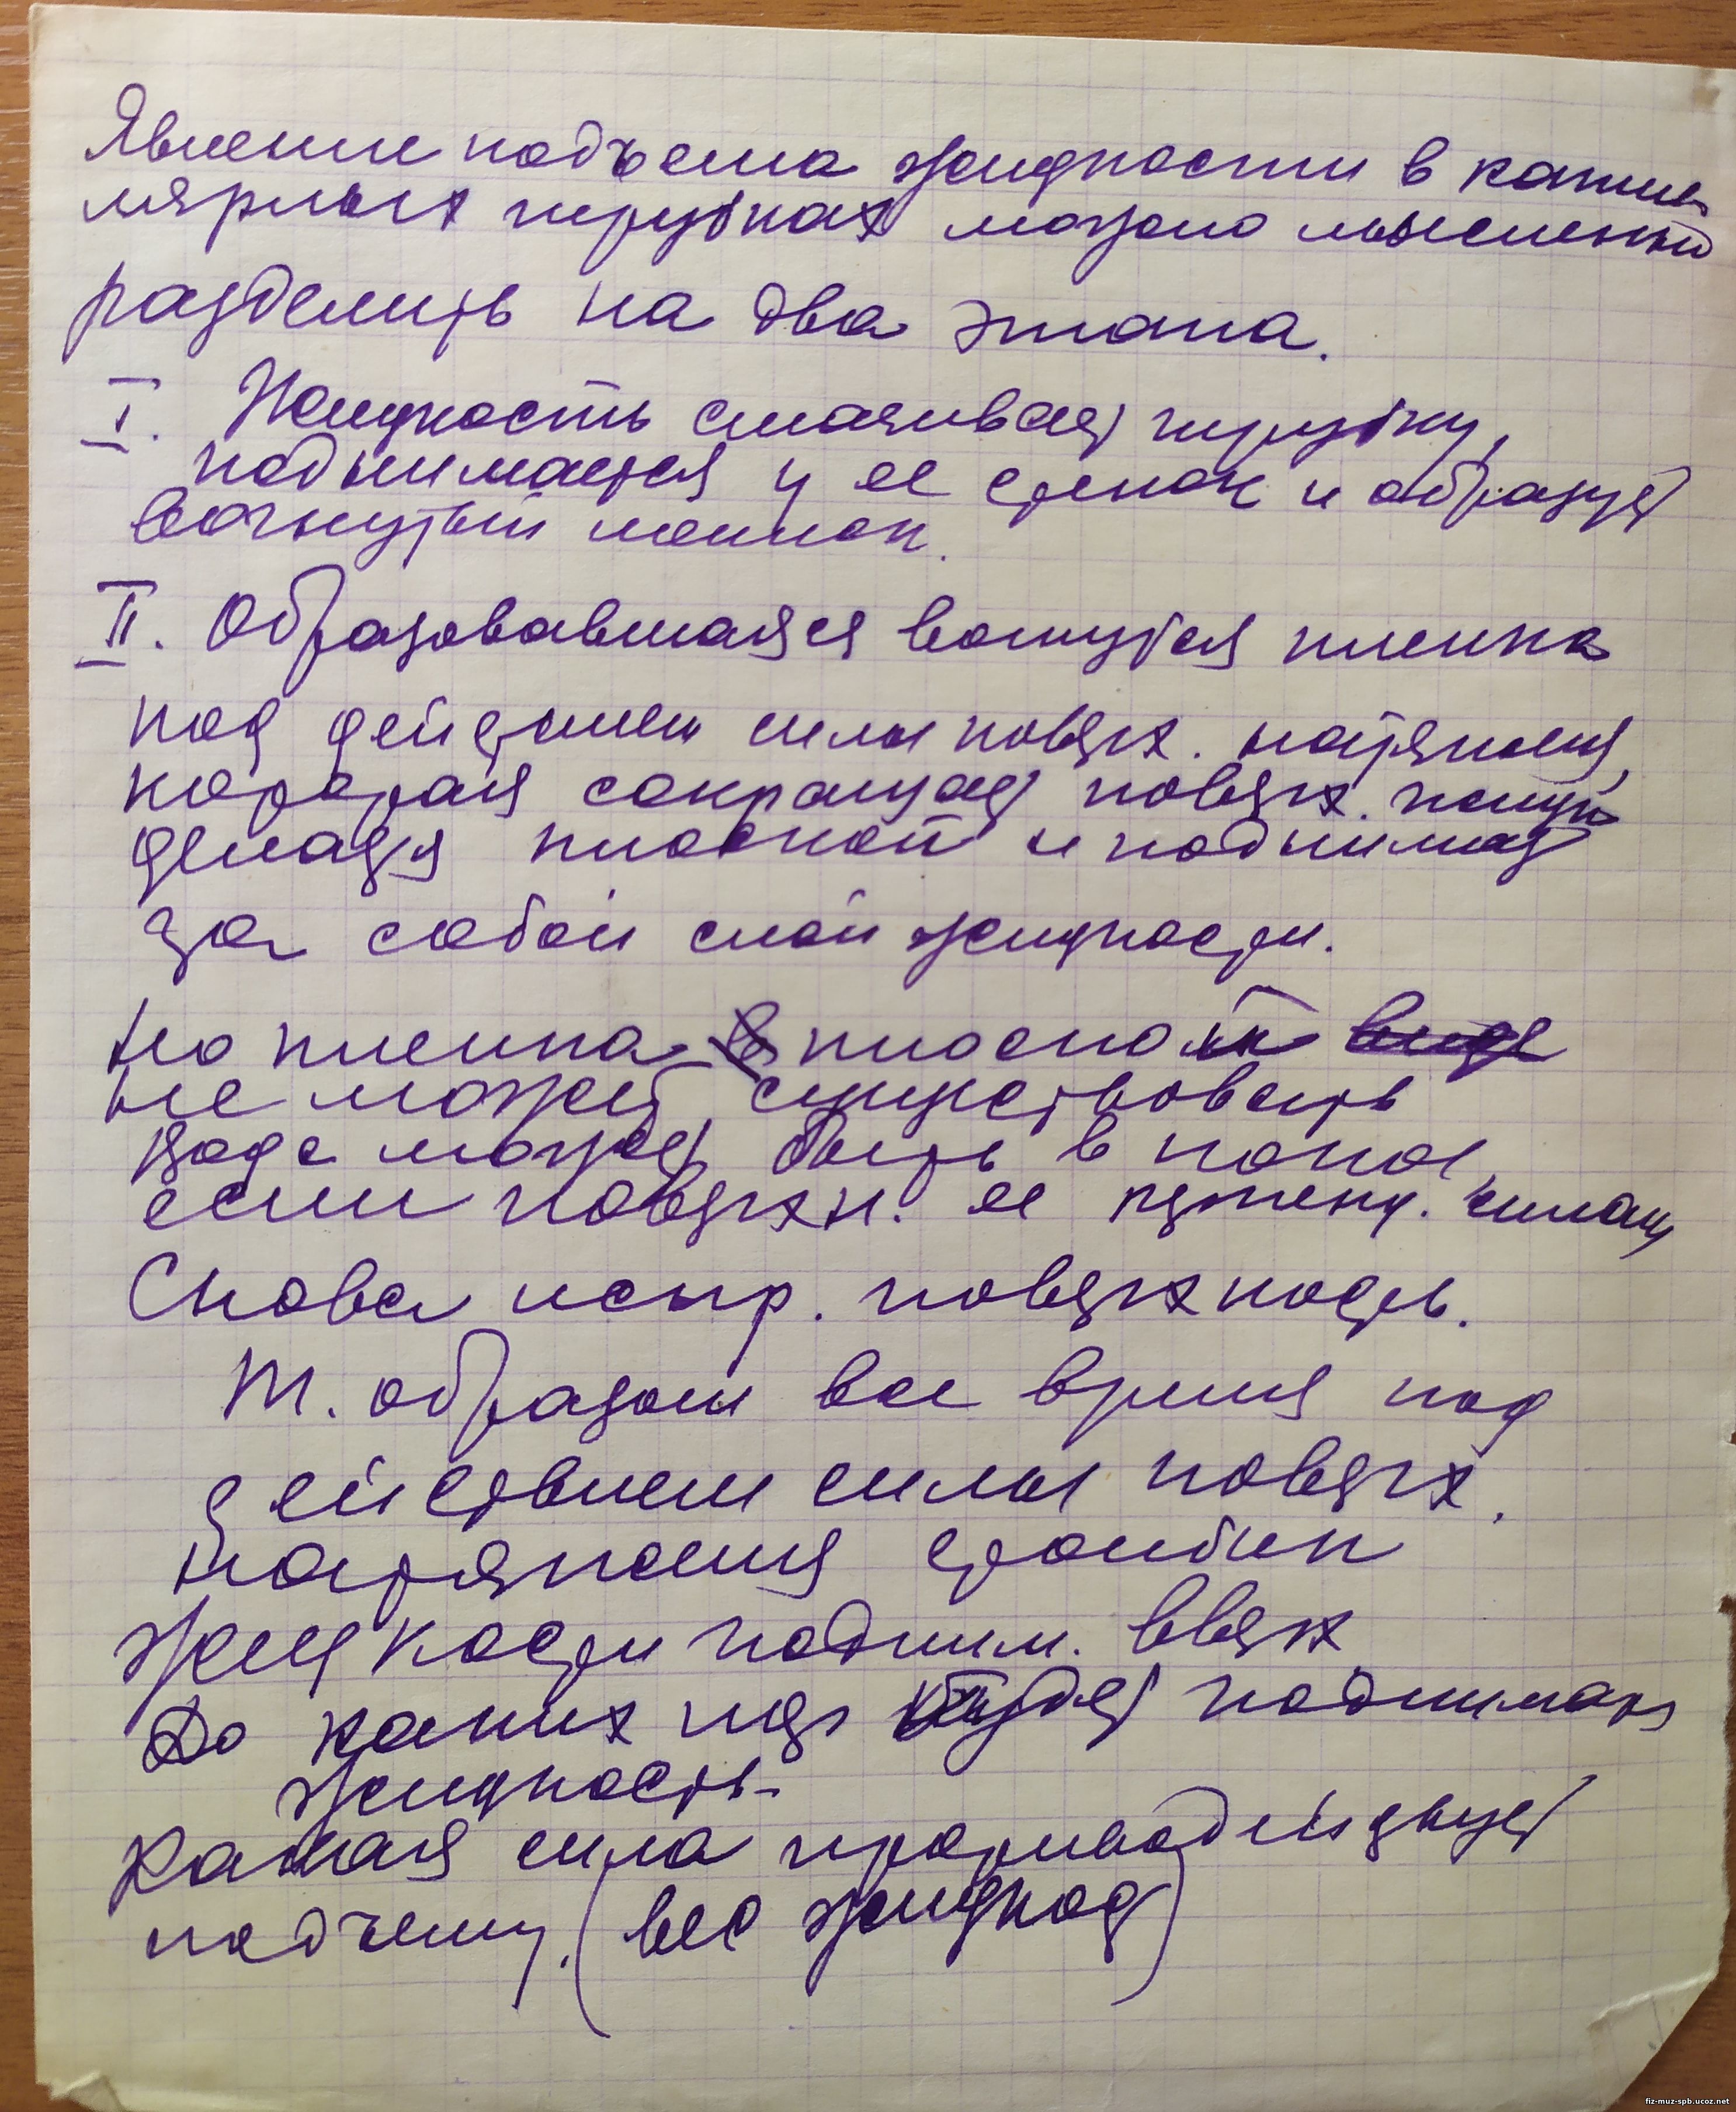 Явление подъема жидкости в капил-
лярных трубках можно мысленно
разделить на два этапа.
I. Жидкость смачивает трубку,
поднимается у ее стенок и образует
вогнутый мениск.
II. Образовавшаяся вогнутая пленка
под действием силы поверх. натяжения,
которая сокращает поверх.
делается плоской и поднимает
за собой слой жидкости.
Но пленка плоской
не может существовать
вода может быть в покое,
если поверхн. ее
Снова искр. поверхность.
Т. образом все время под
действием силы поверх.
натяжения столбик
жидкости подним. вверх
До каких пор будет подниматься
жидкость.
Какая сила противодействует
подъему. (вес жидкос)
fiz-muz-spb.ucoz.net